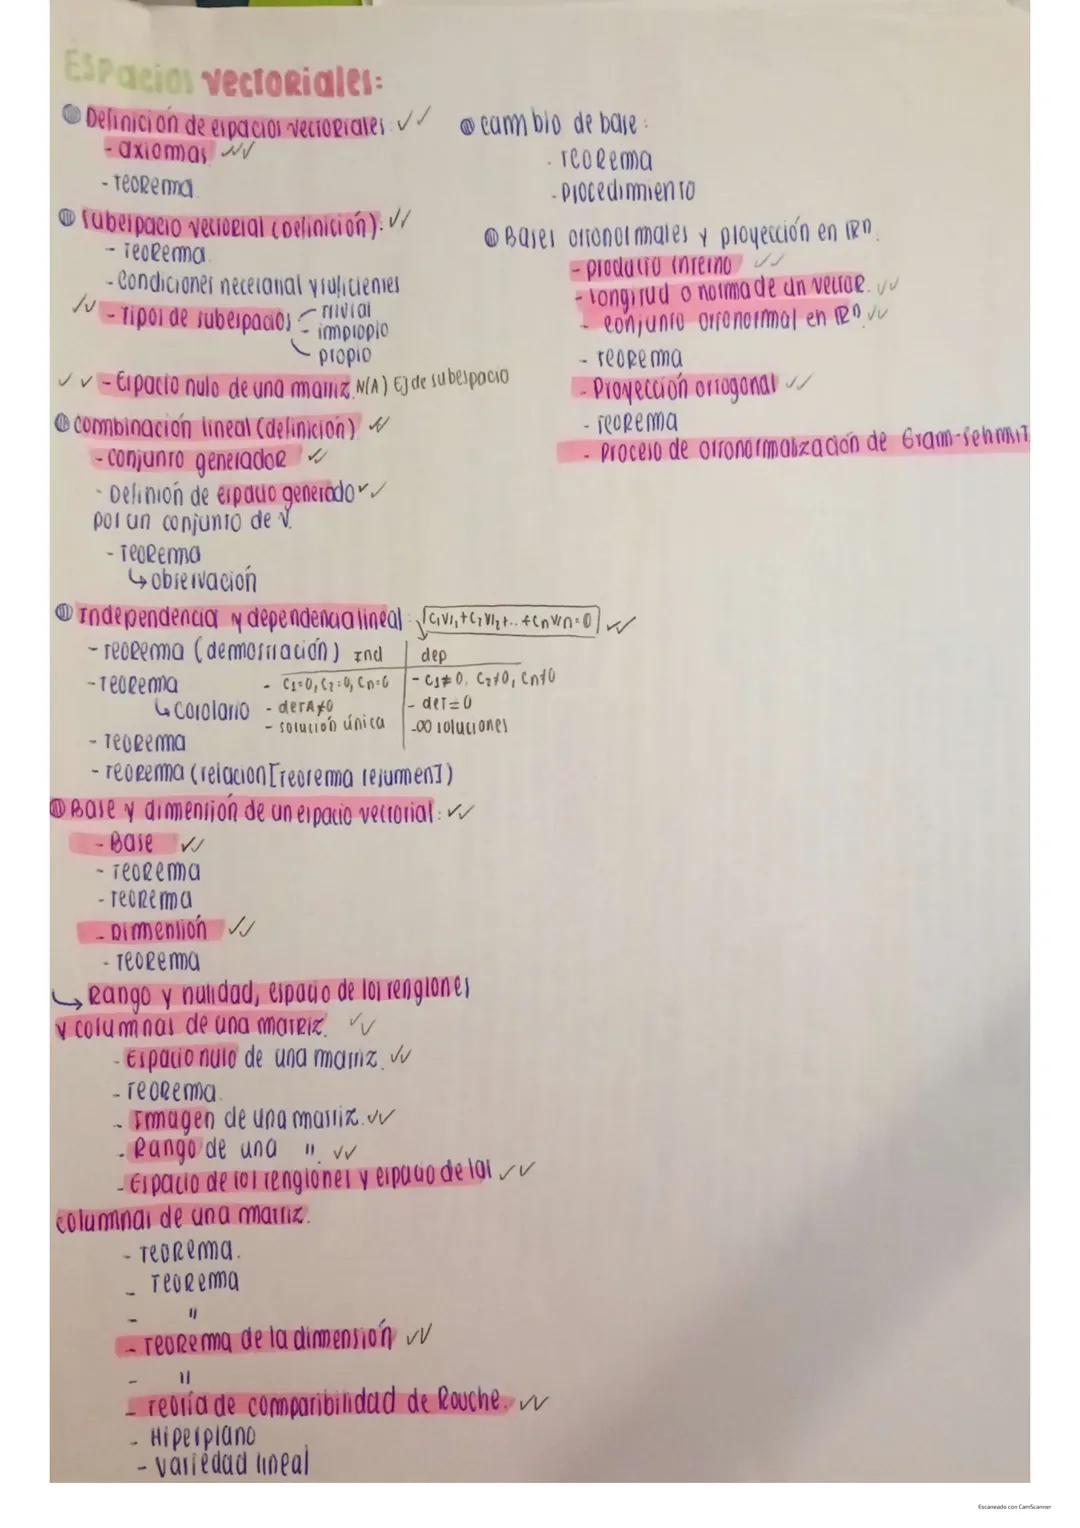 Espacios vectoriales:
Definición de espacios vectoriales
- axiomas
- Teorema
subespacio vectorial (definición):
- Teorema
- Condiciones necesarias y suficientes
- Tipos de subespacios - trivial
- impropio
- propio
- Espacio nulo de una matriz N(A) Ej de subespacio
combinación lineal (definición)
- conjunto generador
- Definión de espacio generado
por un conjunto de V.
- Teorema
↳ observación
Independencia y dependencia lineal: C₁V₁+C₂V₂+..+CnVn=0
- Teorema (demostración) Ind | dep
- Teorema - C₁=0, C₂=0, Cn=0 | - C₁≠0, C₂≠0, Cn≠0
↳ Corolario - det A≠0 | - det=0
- solución única | - ∞ soluciones
- Teorema
- Teorema (relacion [Teorema resumen])
Base y dimensión de un espacio vectorial:
- Base
- Teorema
- Teorema
- Dimensión
- Teorema
↳ Rango y nulidad, espacio de los renglones
y columnas de una matriz.
- Espacio nulo de una matriz.
- Teorema.
- Imagen de una matriz.
- Rango de una ".
- Espacio de los renglones y espacio de las
columnas de una matriz.
- Teorema.
- Teorema
- "
- Teorema de la dimensión
- "
- Teoría de compatibilidad de Rouche.
- Hiperplano
- variedad lineal
cambio de base:
- Teorema
- Procedimiento
Bases ortonormales y proyección en Rⁿ.
- producto interno
- longitud o norma de un vector.
- conjunto ortonormal en Rⁿ
- Teorema
- Proyección ortogonal
- Teorema
- Proceso de ortonormalización de Gram-Schmit
Escaneado con CamScanner